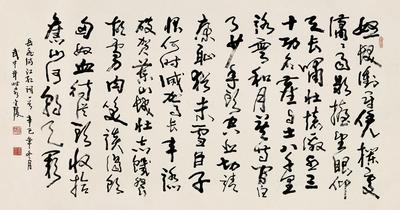 怒髮衝冠憑欄處
瀟瀟雨歇擡望眼仰
天長嘯壯懷激烈三
十功名塵與土八千里
路雲和月莫等閒白
了少年頭空悲切靖
康恥猶未雪臣子
恨何時滅駕長車踏
破賀蘭山缺壯志飢餐
胡虜肉笑談渴飲
匈奴血待從頭收拾
舊山河朝天闕
岳飛滿江紅詞一首辛巳年十月